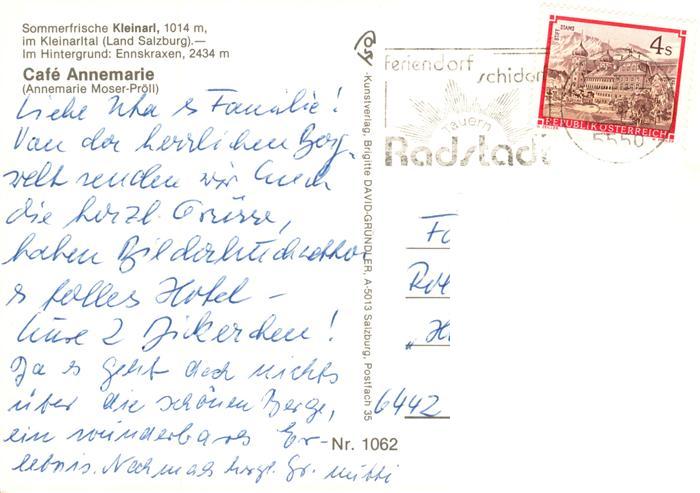 Sommerfrische Kleinarl, 1014 m,
im Kleinarltal (Land Salzburg).—
Im Hintergrund: Ennskraxen, 2434 m
Café Annemarie
(Annemarie Moser-Pröll)
Liebe Uta & Familie!
Von der herrlichen Berg-
welt senden wir Euch
die herzl. Grüsse,
haben Bilderbuchwetter
& tolles Hotel –
Eure 2
Ja es geht doch nichts
über die schönen Berge,
ein wunderbares Er-
lebnis. Nochmals herzl. Gr. Mutti
Nr. 1062
Kunstverlag, Brigitte DAVID-GRÜNDLER, A-5013 Salzburg, Postfach 35
Feriendorf
schidorf
Tauern
Radstadt
5550
STIFT STAMS
4 S
REPUBLIK ÖSTERREICH
6442